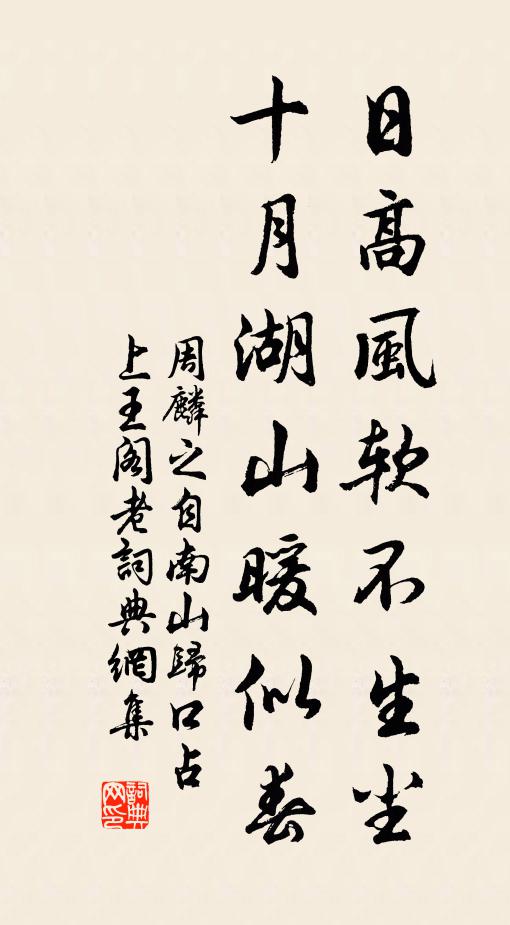 日高風軟不生尘
十月湖山暖似春
周麟之自南山歸口占
上王阁老詞典網集
詞典
网印